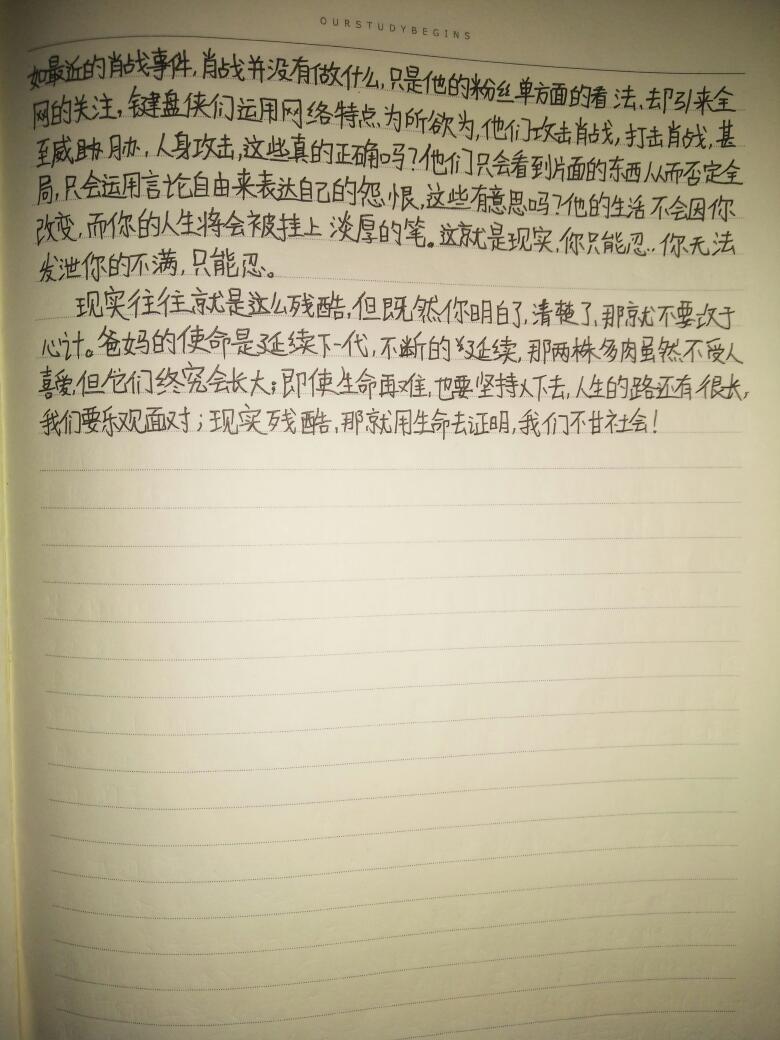 OURSTUDYBEGINS
如最近的肖战事件,肖战并没有做什么,只是他的粉丝单方面的看法、却引来全
网的关注,键盘侠们运用网络特点为所欲为,他们攻击肖战,打击肖战,甚
至威胁,人身攻击,这些真的正确吗?他们只会看到片面的东西从而否定全
局,只会运用言论自由来表达自己的怨恨,这些有意思吗?他的生活不会因你
改变,而你的人生将会被挂上淡厚的笔。这就是现实,你只能忍..你无法
发泄你的不满,只能忍。
现实往往就是这么残酷,但既然你明白了,清楚了,那就不要攻于
心计。爸妈的使命是延续下一代,不断的延续,那两株多肉虽然不受人
喜爱,但它们终究会长大;即使生命再难,也要坚持下去,人生的路还有很长,
我们要乐观面对;现实残酷,那就用生命去证明,我们不甘社会!